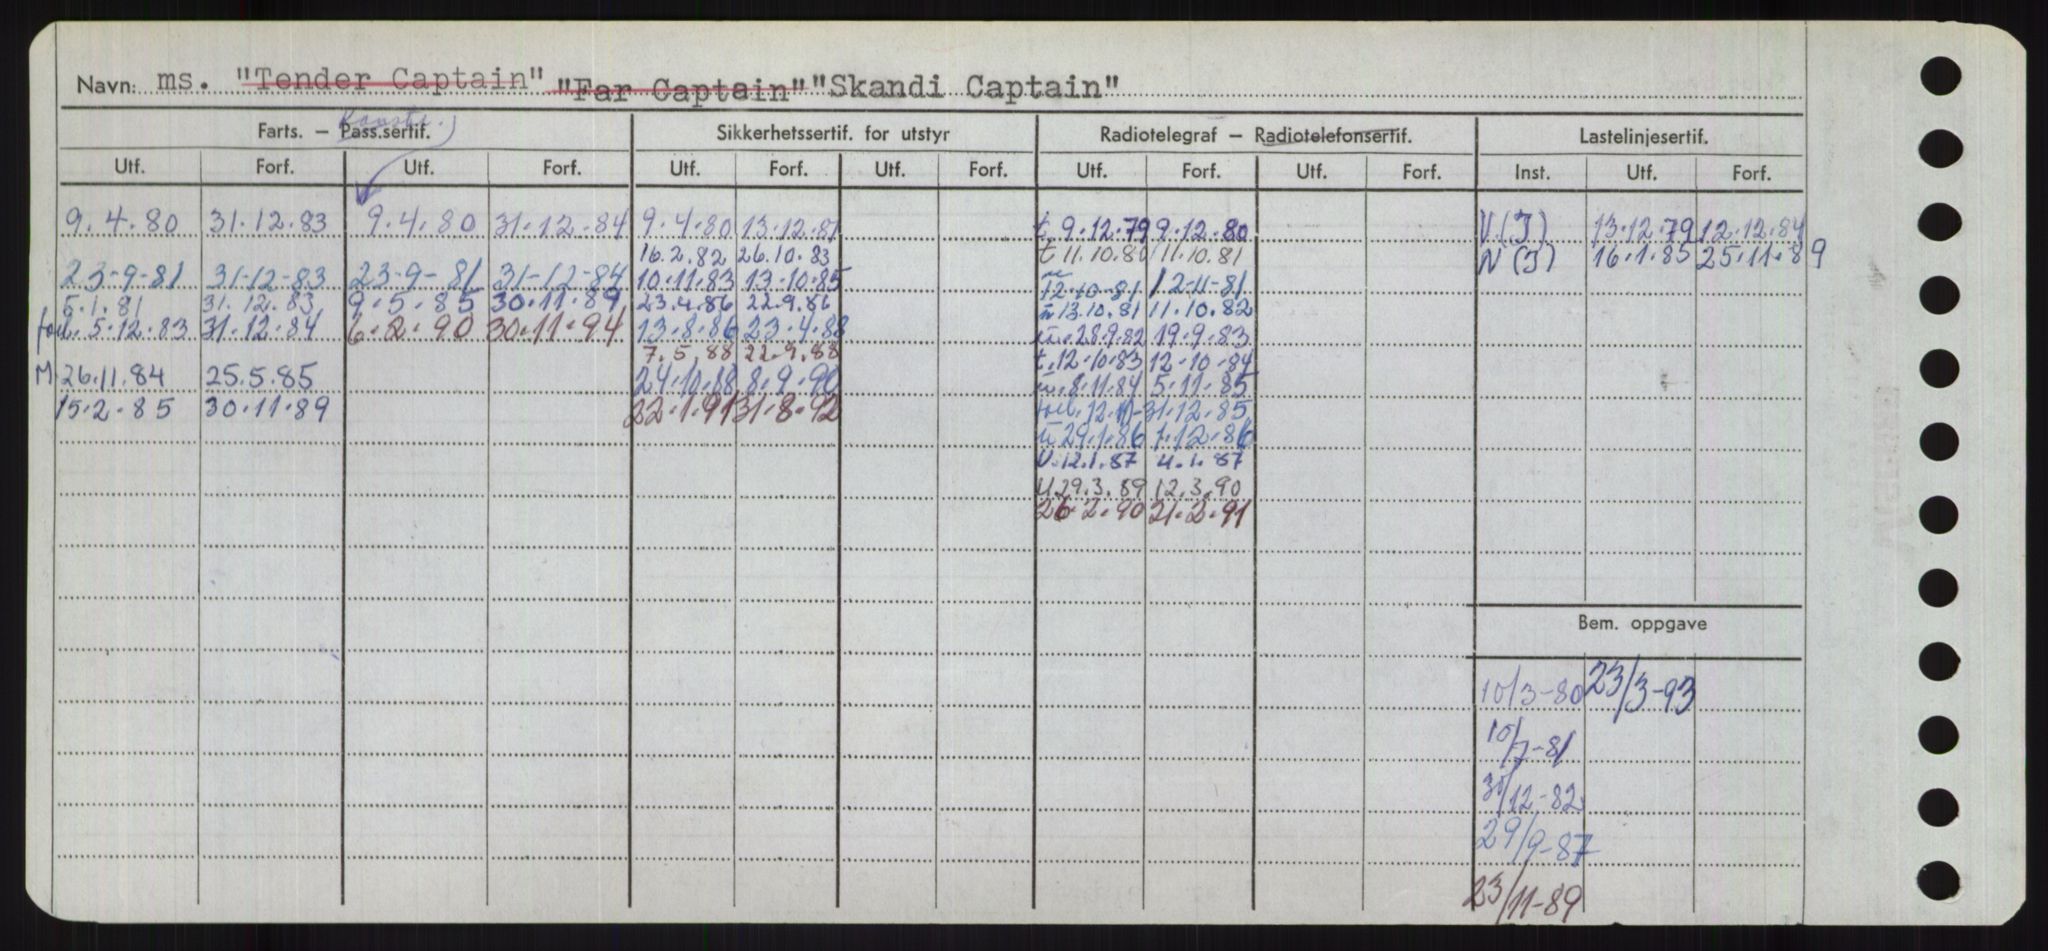 Navn: ms. "Tender Captain" "Far Captain" "Skandi Captain"
Konstr.
Farts. — Pass.sertif. Sikkerhetssertif. for utstyr Radiotelegraf — Radiotelefonsertif. Lastelinjesertif.
Utf. Forf. Utf. Forf. Utf. Forf. Utf. Forf. Utf. Forf. Utf. Forf. Inst. Utf. Forf.
9.4.80 31.12.83 9.4.80 31.12.84 9.4.80 13.12.81 t. 9.12.79 9.12.80 V(I) 13.12.79 12.12.84
16.2.82 26.10.83 t 11.10.80 11.10.81 N(I) 16.1.85 25.11.89
23-9-81 31-12-83 23-9-81 31-12-84 10.11.83 13-10.85 12-10-81 12-11-81
5.1.81 31.12.83 9.5.85 30.11.89 23.4.86 22.9.86 13.10.81 11.10.82
forl. 5.12.83 31.12.84 6.2.90 30.11.94 13.8.86 23.4.88 28.9.82 19.9.83
7.5.88 22.9.88 t. 12.10.83 12.10.84
M 26.11.84 25.5.85 24.10.88 8.9.90 8.11.84 5.11.85
15.2.85 30.11.89 22.1.91 31.8.92 forl. 31.12.85
29.1.86 1.12.86
V. 12.1.87 4.1.87
U 29.3.89 12.3.90
26.2.90 21.2.91
Bem. oppgave
10/3-80 23/3-93
10/7-81
30/12-82
29/9-87
23/11-89